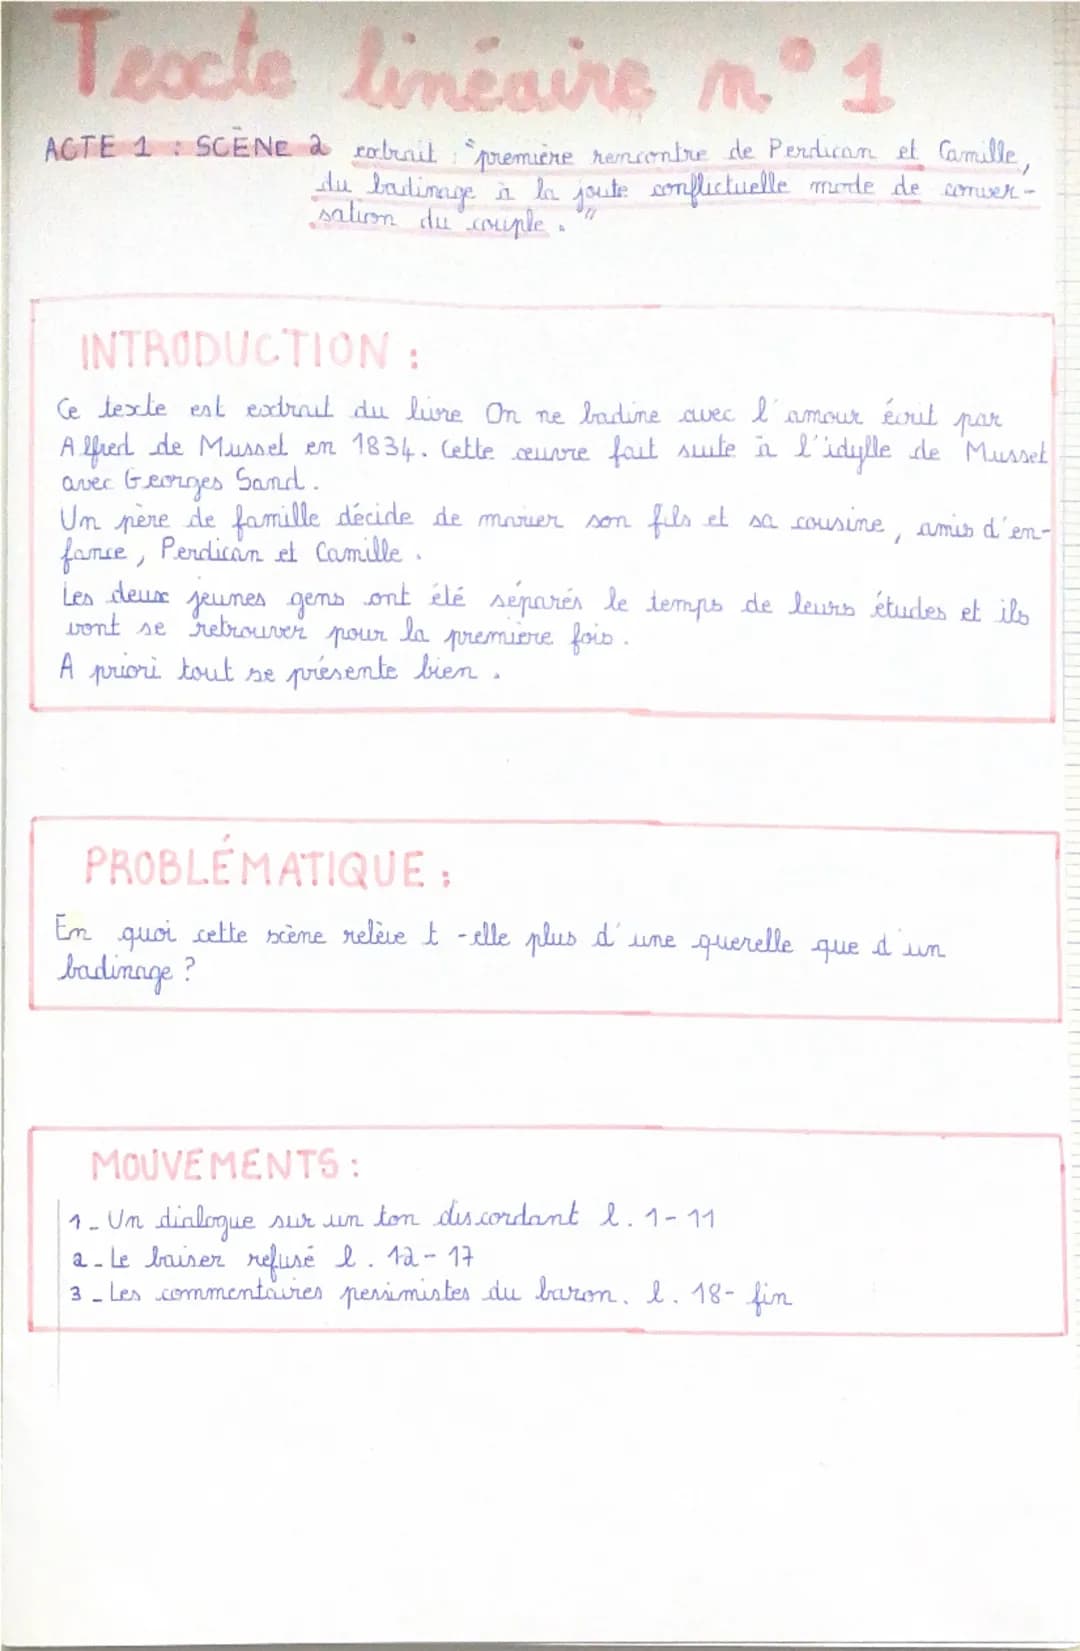 Texte linéaire n° 1
ACTE 1 : SCÈNE 2 extrait : "première rencontre de Perdican et Camille,
du badinage à la joute conflictuelle mode de conver-
sation du couple."
INTRODUCTION :
Ce texte est extrait du livre On ne badine avec l'amour écrit par
Alfred de Musset en 1834. Cette œuvre fait suite à l'idylle de Musset
avec Georges Sand.
Un père de famille décide de marier son fils et sa cousine, amis d'en-
fance, Perdican et Camille.
Les deux jeunes gens ont été séparés le temps de leurs études et ils
vont se retrouver pour la première fois.
A priori tout se présente bien.
PROBLÉMATIQUE :
En quoi cette scène relève t-elle plus d'une querelle que d'un
badinage ?
MOUVEMENTS :
1_ Un dialogue sur un ton discordant l. 1-11
2_ Le baiser refusé l. 12-17
3_ Les commentaires pessimistes du baron. l. 18- fin